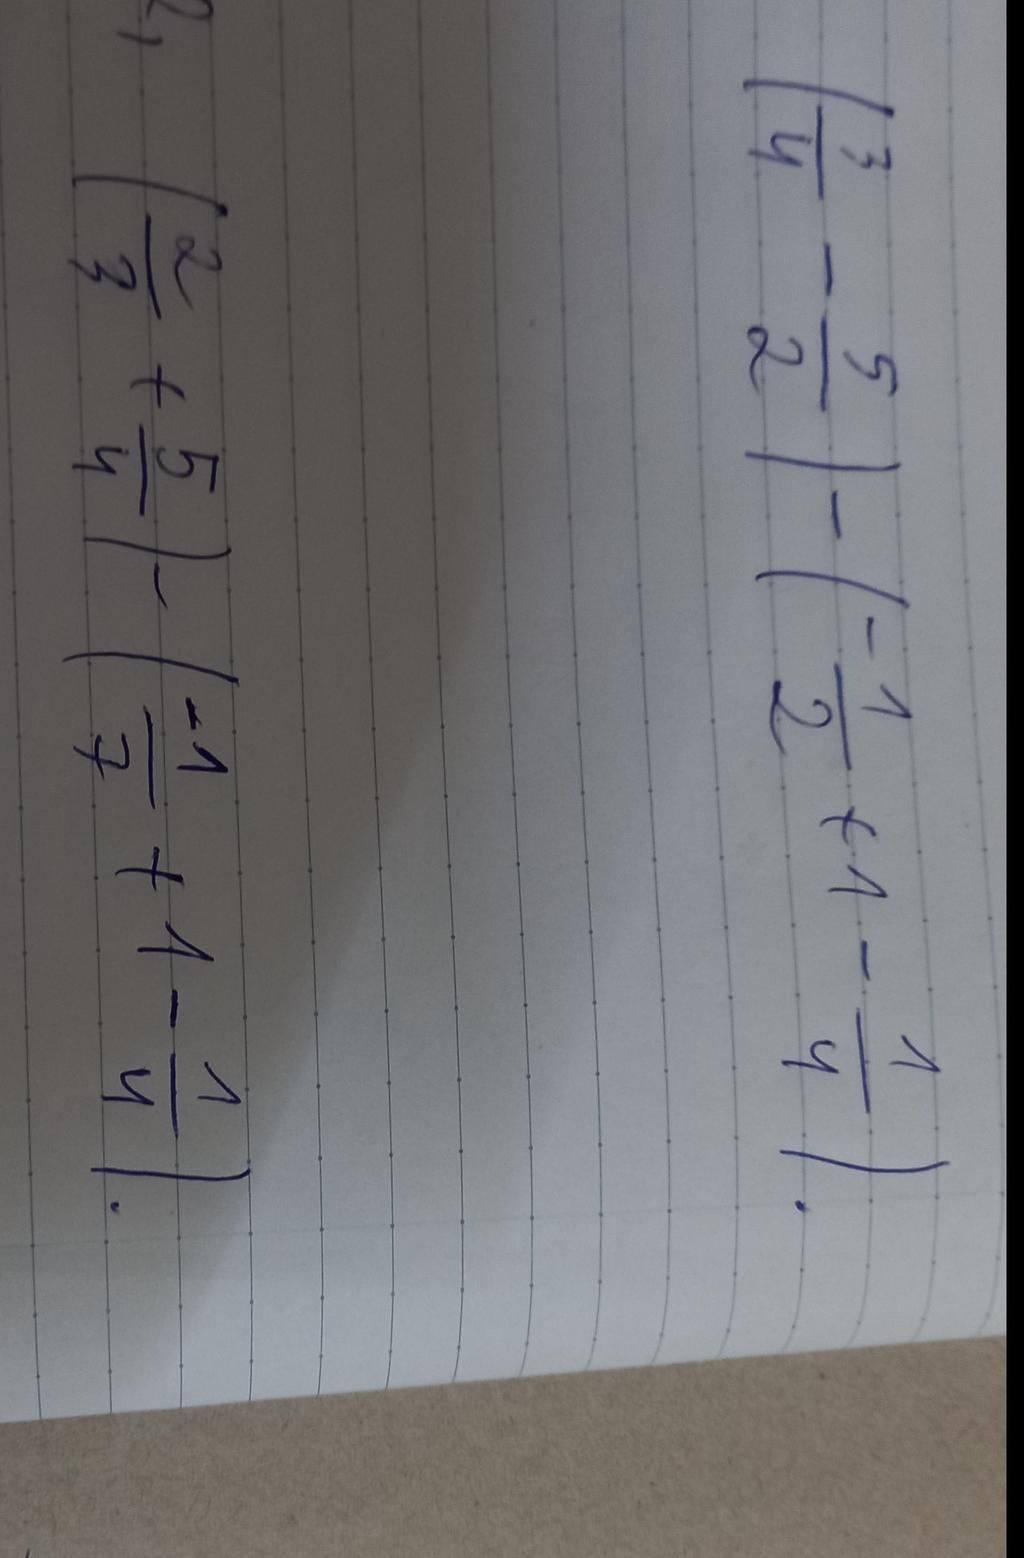 (3/4 - 5/2) - (-1/2 + 1 - 1/4).
2, (2/3 + 5/4) - (-1/7 + 1 - 1/4).